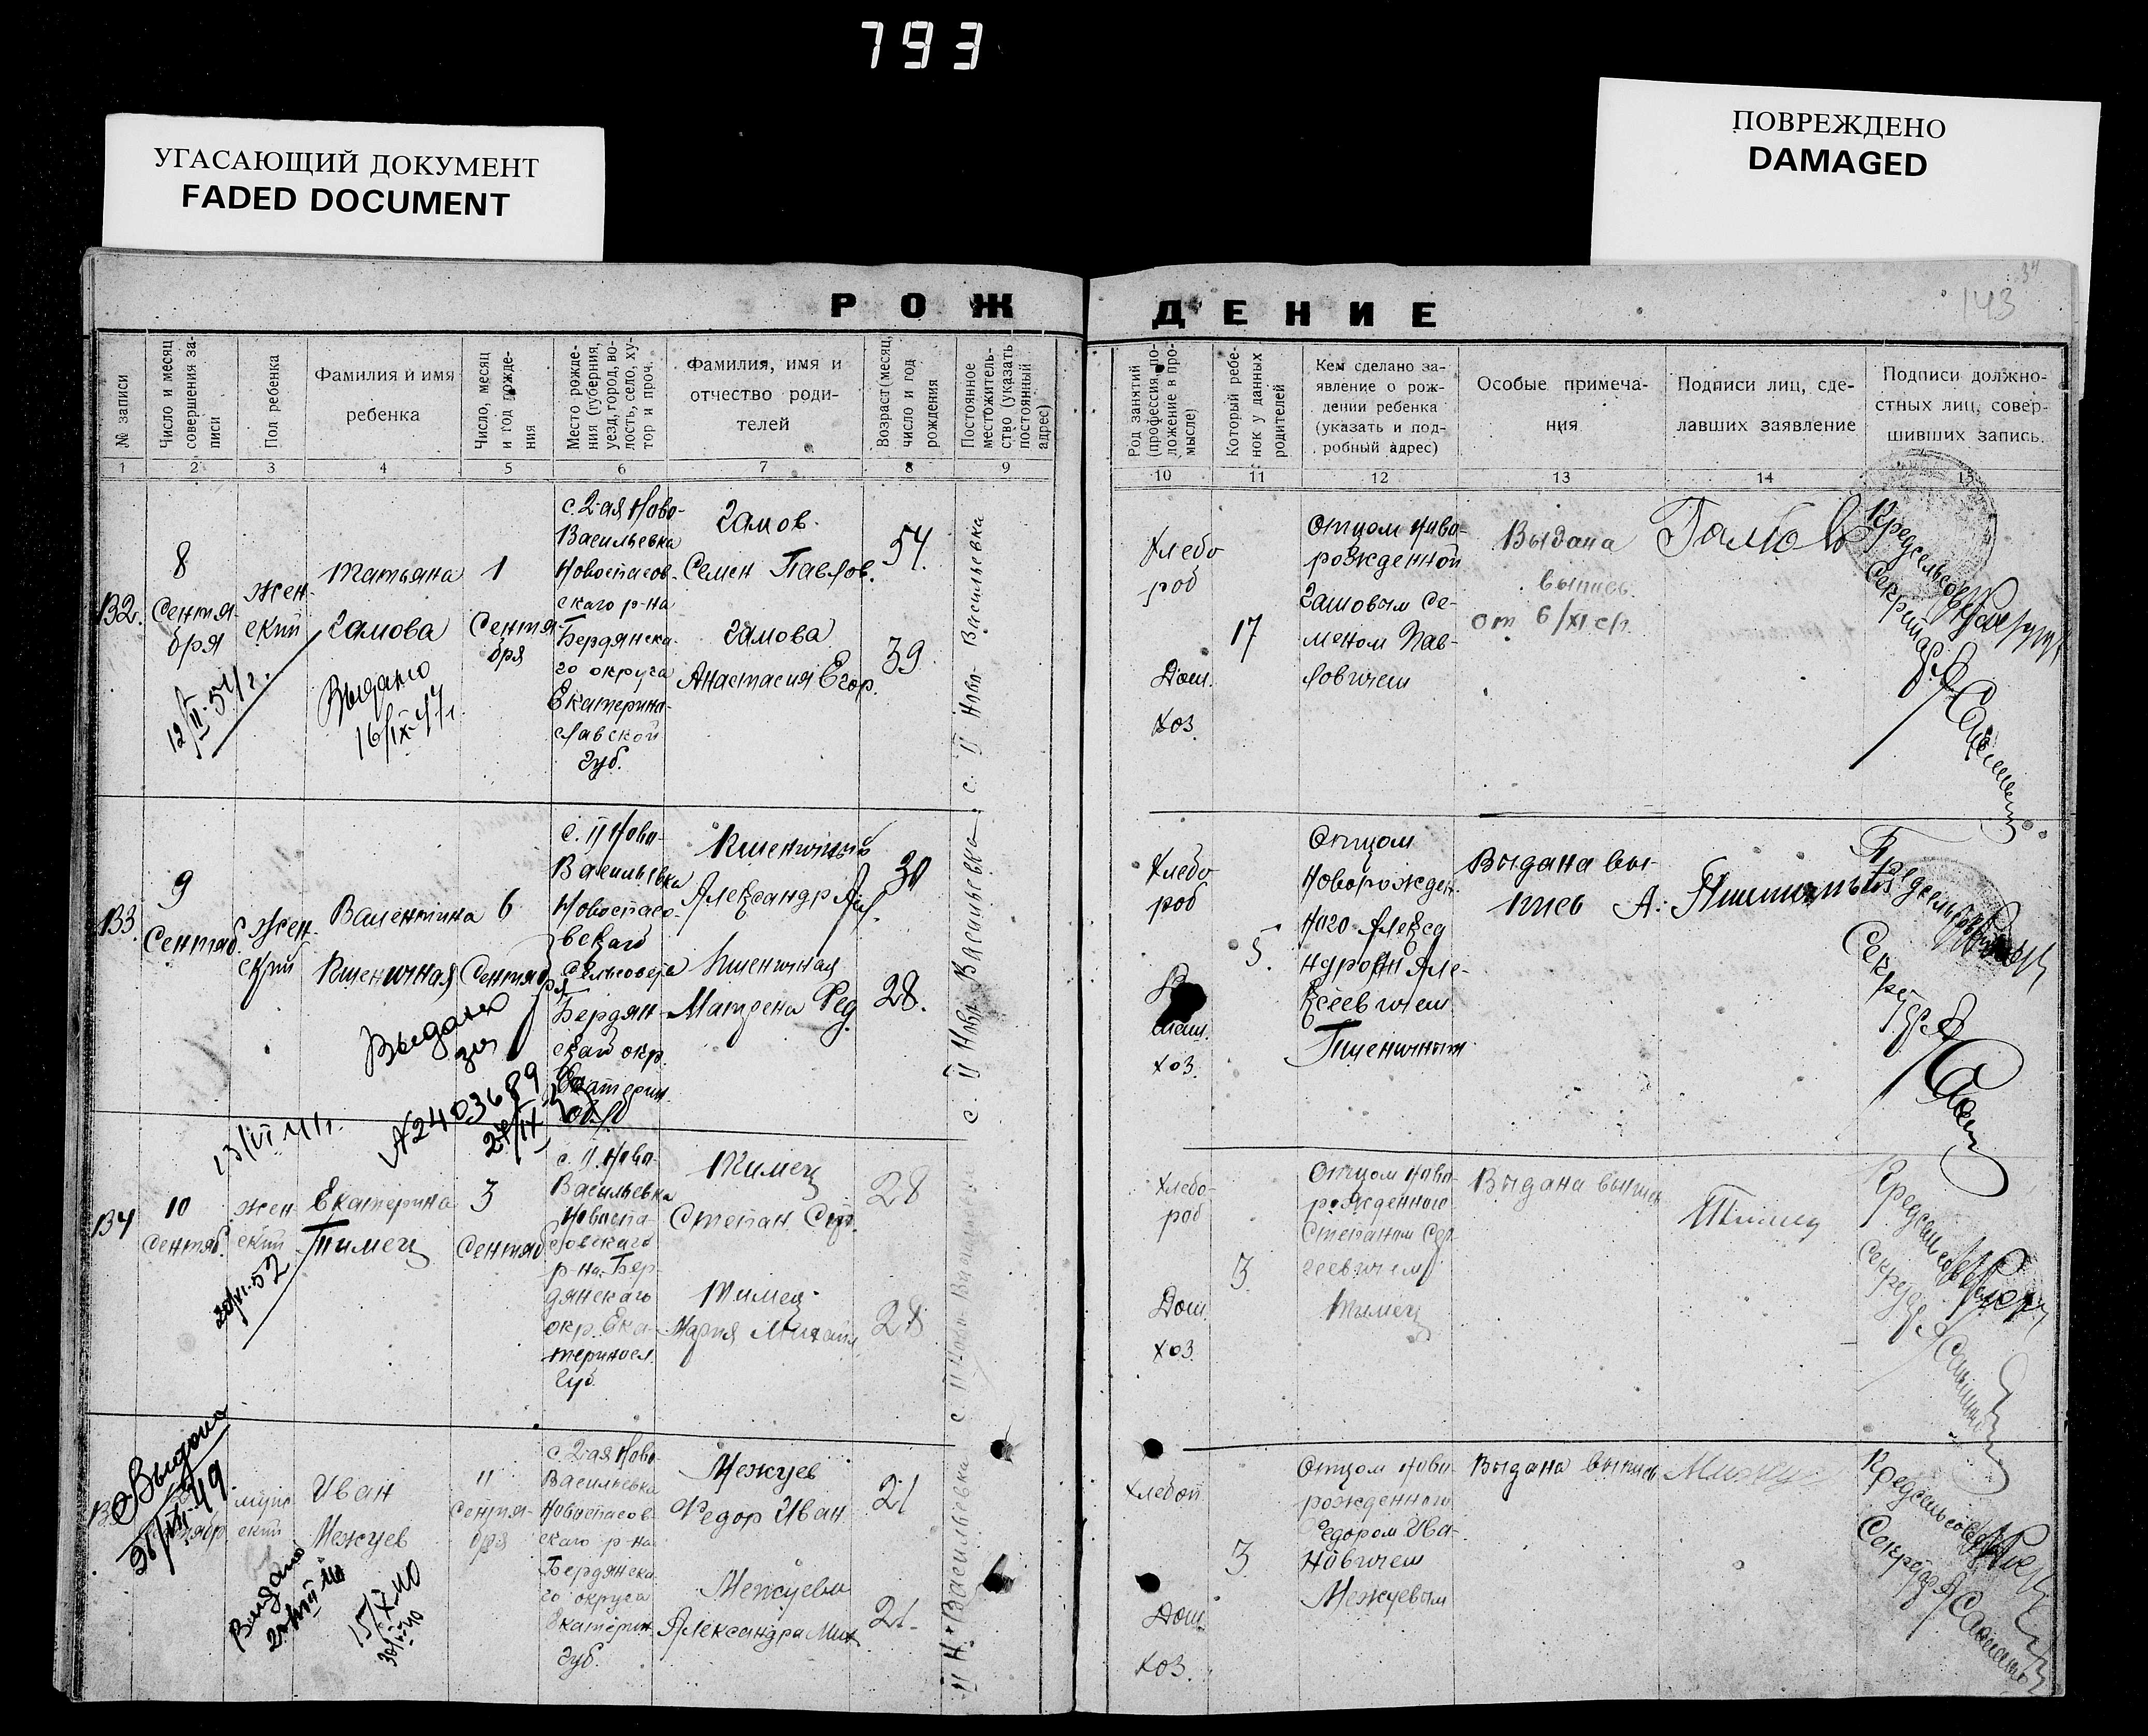 793
УГАСАЮЩИЙ ДОКУМЕНТ
FADED DOCUMENT
ПОВРЕЖДЕНО
DAMAGED
143
РОЖДЕНИЕ
№ записи
Число и месяц совершения записи
Пол ребенка
Фамилия и имя
ребенка
Число, месяц и год рождения
Место рождения (губерния, уезд, город, волость, село, хутор и проч.
Фамилия, имя и
отчество роди-
телей
Возраст (месяц, число и год рождения
Постоянное местожительство (указать постоянный адрес)
Род занятий (профессия, положение в промысле)
Который ребенок у данных родителей
Кем сделано за-
явление о рож-
дении ребенка
(указать и под-
робный адрес)
Особые примеча-
ния
Подписи лиц, сде-
лавших заявление
Подписи должно-
стных лиц, совер-
шивших запись.
1 2 3 4 5 6 7 8 9 10 11 12 13 14 15
132.
8
Сентя-
бря
жен-
ский
Татьяна
Гамова
1
Сентя
бря
с. 2-ая Ново-
Васильевка
Новоспасов-
скаго р-на
Бердянска-
го округа
Екатерино-
славской
губ.
Гамов.
Семен Павлов.
Гамова
Анастасия Егор.
54.
39
с. II Ново-Васильевка
Хлебо
роб
Дом.
хоз.
17
Отцом ново-
рожденной
Гамовым Се-
меном Пав-
ловичем
Выдана
выпись
от 6/XI с/г.
Гамов
Предсельсовета
Секретарь
12/II-51/г.
Выдано
16/IX-47г.
133.
9
Сентяб.
Жен-
ский
Валентина
Пшеничная
6
Сентяб
ря
с. II Ново-
Васильевка
Новоспасо-
вскаго
сельсовета
Бердян-
скаго окр.
Пшеничный
Александр Ал.
Пшеничная
Матрена Фед.
30
28.
с. II Ново-Васильевка
Хлебо
роб
хоз.
5.
Отцом
новорожден-
наго Алекса
ндром Але-
ксеевичем
Пшеничным
Выдана вы-
пись
А. Пшеничный
Предсельсовета
Секретарь
Выдано
13/VI 41г.
134
10
Сентяб.
жен-
ский
Екатерина
Тимец
3
Сентяб
с. II. Ново-
Васильевка
Новоспа-
совскаго
р-на. Бер-
дянскаго
окр. Ека-
териносл.
Губ.
Тимец
Степан Сер.
Тимец
Мария Михайл.
28
28
с. II Ново-Васильевка
Хлебо-
роб
Дом.
хоз.
3
Отцом ново-
рожденного
Степаном Сер-
геевичем
Тимец
Выдана выпись
Тимец
Предсельсовета
Секретарь
Выдано
мужс
ский
Иван
Межуев
11
Сентя-
бря
с. 2-ая Ново
Васильевка
Новоспасов-
скаго р-на
Бердянска-
го округа
Екатерин.
губ.
Межуев
Федор Иван
Межуева
Александра Мих
21
21.
II Н-Васильевка
Хлебоп.
Дом.
хоз.
3.
Отцом ново-
рожденного
Федором Ива-
новичем
Межуевым
Выдана выпись
Предсельсовета
Секретарь
Выдано
15/X-40